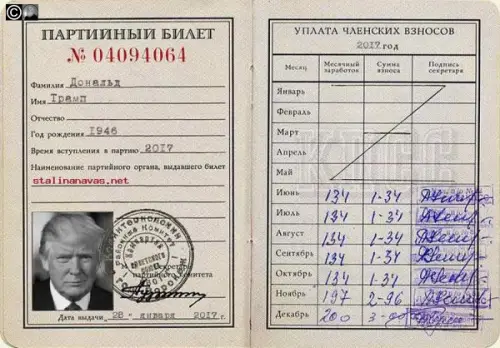 ПАРТИЙНЫЙ БИЛЕТ
№ 04094064
Фамилия Дональд
Имя Трамп
Отчество
Год рождения 1946
Время вступления в партию 2017
Наименование партийного органа, выдавшего билет
stalinanavas.net
Секретарь
партийного комитета
Дата выдачи „28“ января 2017 г.
УПЛАТА ЧЛЕНСКИХ ВЗНОСОВ
2017 год
Месяц Месячный заработок Сумма взноса Подпись секретаря
Январь
Февраль
Март
Апрель
Май
КПСС
Июнь 134 1-34
Июль 134 1-34
Август 134 1-34
Сентябрь 134 1-34
Октябрь 134 1-34
Ноябрь 197 2-96
Декабрь 200